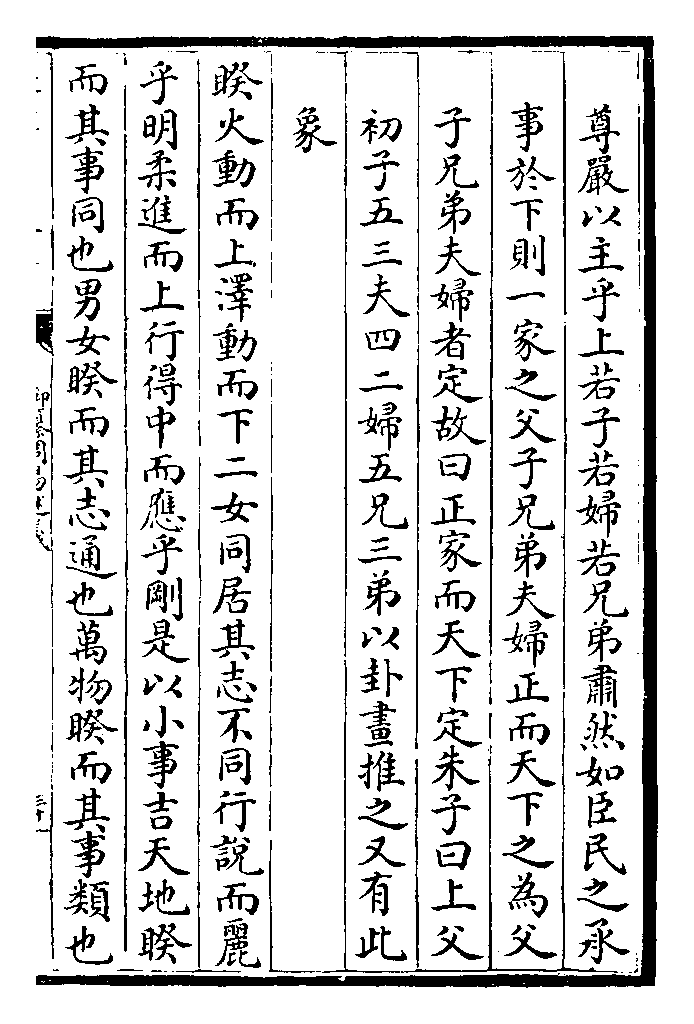 尊嚴以主乎上若子若婦若兄弟肅然如臣民之承
事於下則一家之父子兄弟夫婦正而天下之為父
子兄弟夫婦者定故曰正家而天下定朱子曰上父
初子五三夫四二婦五兄三弟以卦畫推之又有此
象
睽火動而上澤動而下二女同居其志不同行說而麗
乎明柔進而上行得中而應乎剛是以小事吉天地睽
而其事同也男女睽而其志通也萬物睽而其事類也